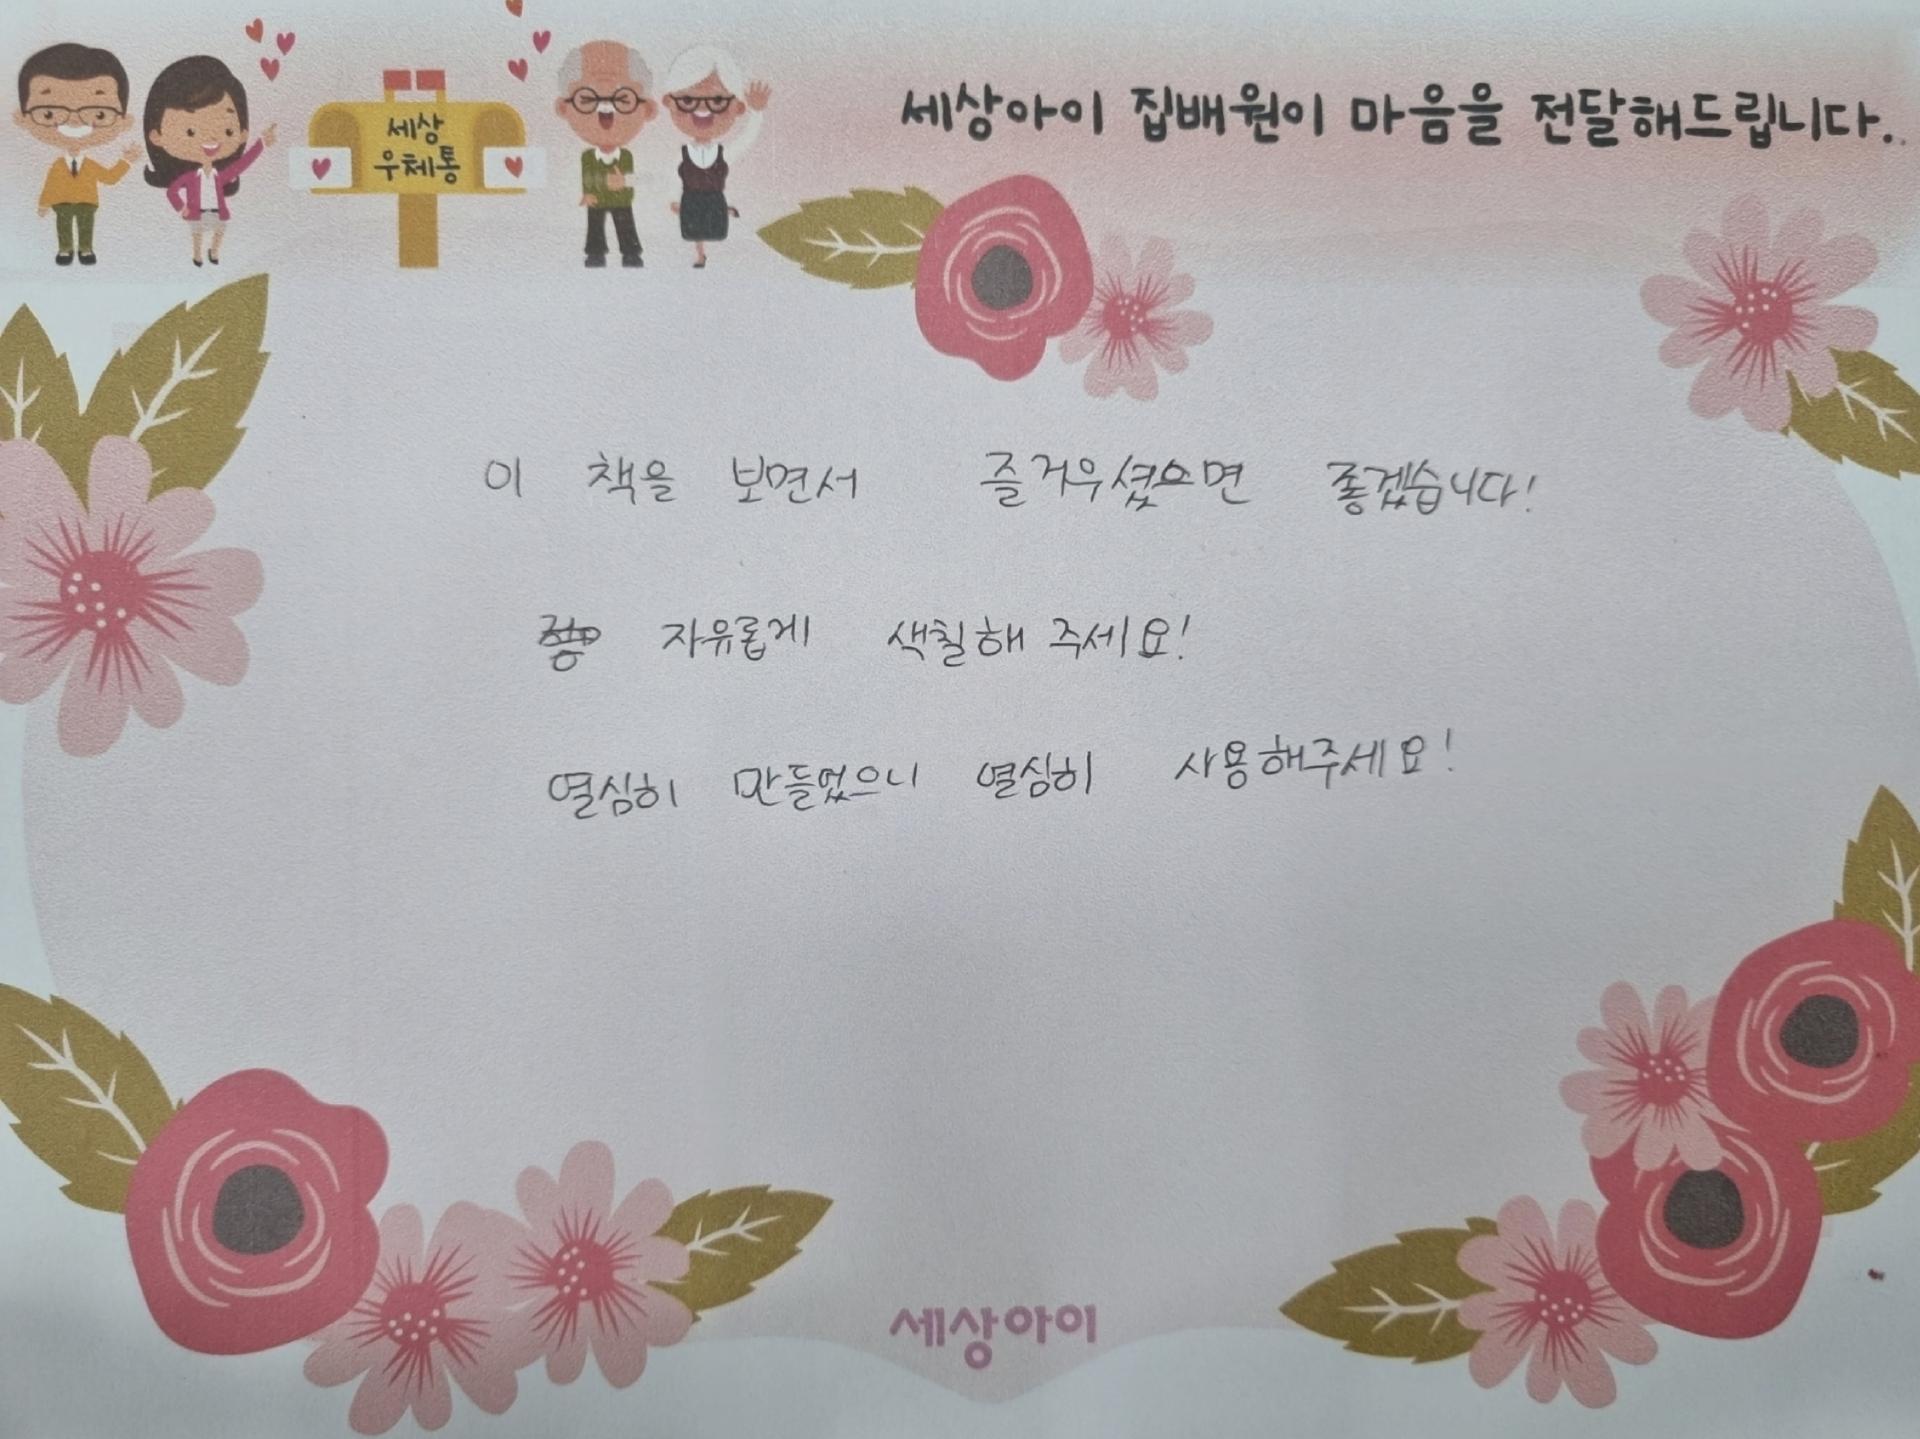 세상아이 집배원이 마음을 전달해드립니다.
세상
우체통
이 책을 보면서 즐거우셨으면 좋겠습니다!
자유롭게 색칠해 주세요!
열심히 만들었으니 열심히 사용해주세요!
세상아이